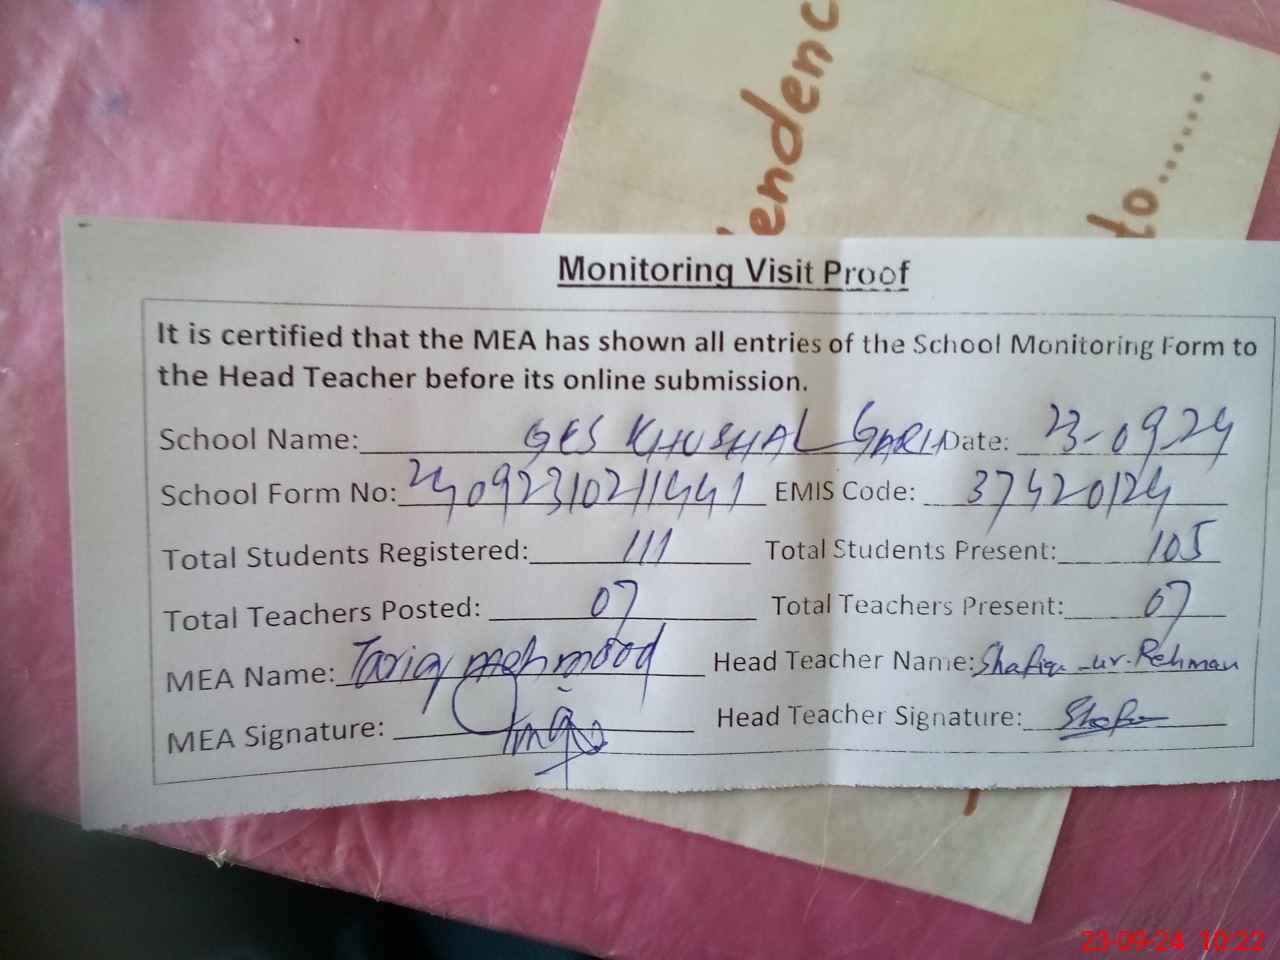 endenc
to.......
Monitoring Visit Proof
It is certified that the MEA has shown all entries of the School Monitoring Form to
the Head Teacher before its online submission.
School Name: GES KHUSHAL GARH Date: 23-09-24
School Form No: 24092310211441 EMIS Code: 37420124
Total Students Registered: 111 Total Students Present: 105
Total Teachers Posted: 07 Total Teachers Present: 07
MEA Name: Tariq mehmood Head Teacher Name: Shafiq-ur-Rehman
MEA Signature: Head Teacher Signature:
23-09-24 10:22